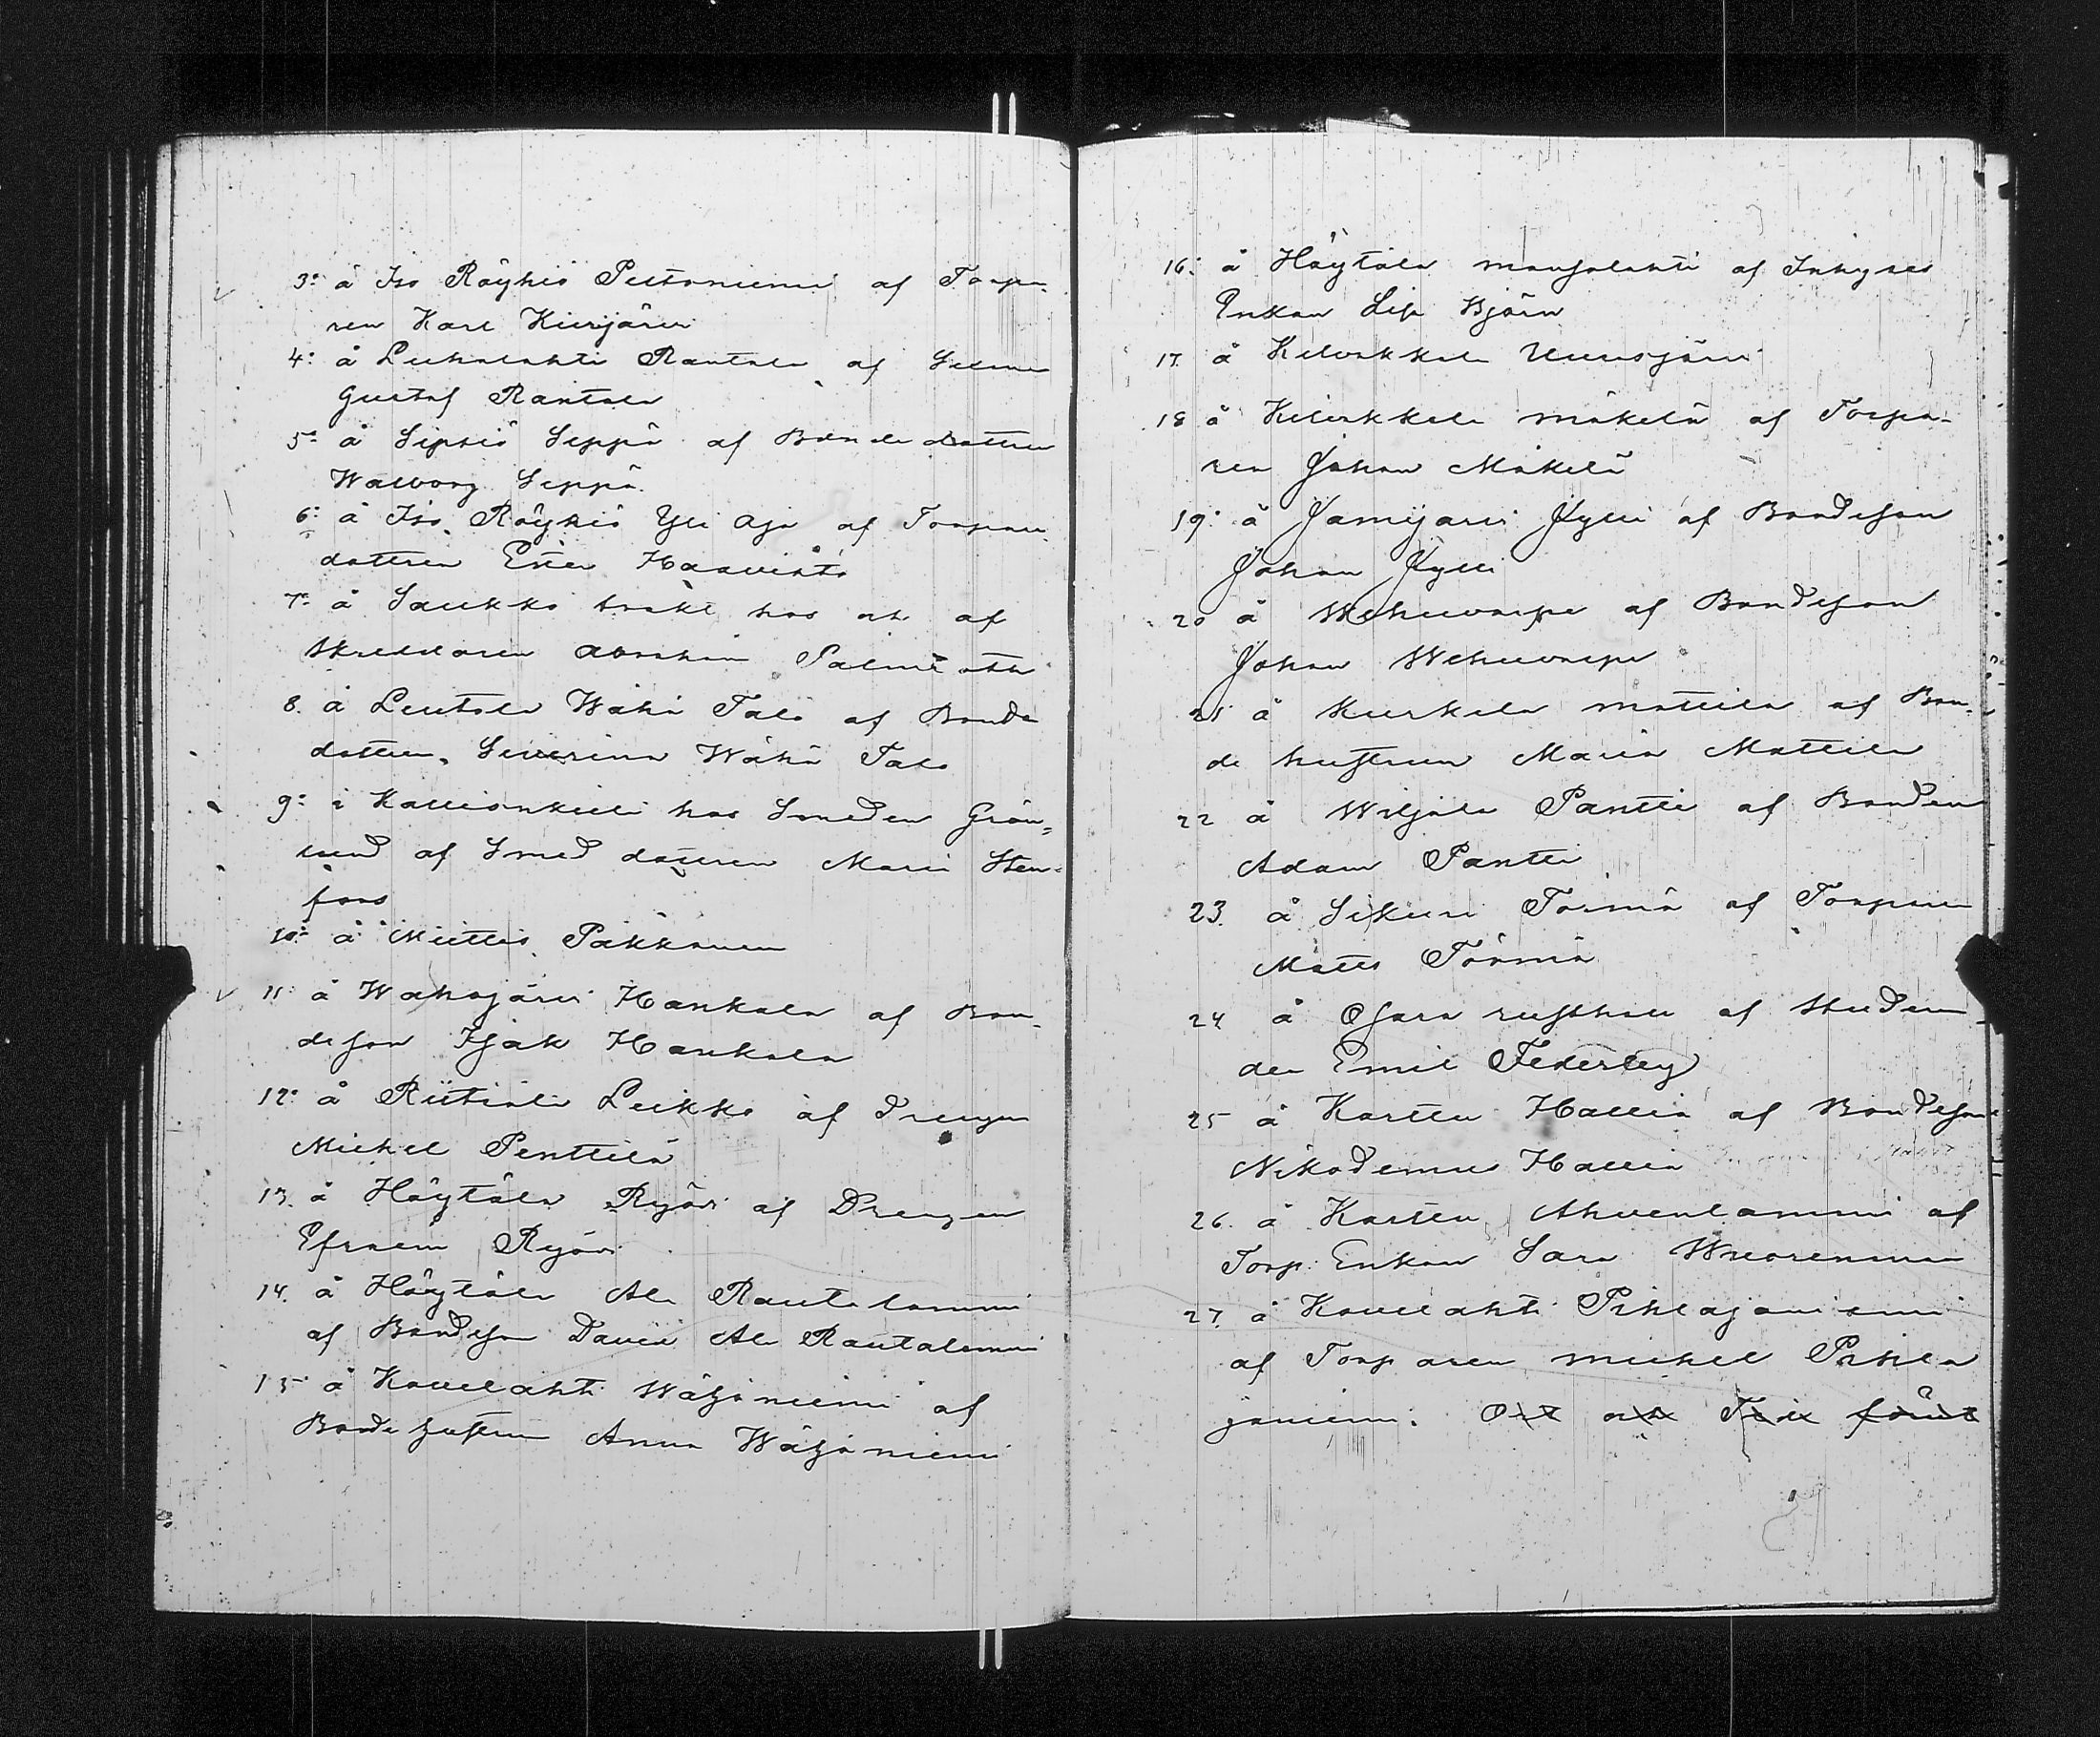 3: å Iso Röyhiö Peltoniemi af Torpa-
ren Karl Kiurijärvi
4: å Luhalahti Rantala af
Gustaf Rantala
5: å Sipsiö Seppä af Bonde dottren
Walborg Seppä
6: å Iso Röyhiö Yli Aja af Torpare
dottren Haavisto
7: å Saukko hos och af
Skreddaren Abraham Palmroth
8. å Leutola Wähä Talo af Bonde
dottren Severina Wähä Talo
9: i hos Smeden Grön=
lund af Smed dottren Maria Sten=
fors
10: å Miettis Pakkanen
11: å Wahojärvi Hankala af Bon-
deson Isak Hankala
12: å Riitiala Leikko af Drengen
Michel Penttilä
13. å Höytölä Ryöv af Drengen
Efraim Ryöv
14. å Höytölä Ala Rautalammi
af Bondeson David Ala Rautalammi
15 å Kovelahti Wähäniemi af
Bonde hustrun Anna Wähäniemi
16: å Höytölä af Inhyses
Enkan Lisa Björn
17. å Kilvakkala Uurasjärvi
18 å Kilvakkala Mäkelä af Torpa-
ren Johan Mäkelä
19: å Jämijärvi Jylli af Bondeson
Johan Jylli
20 å Wehuvarpe af Bondeson
Johan Wehuvarpe
21 å Kurkela Mattila af Bon-
de hustrun Maria Mattila
22 å Wiljala Pantti af Bonden
Adam Pantti
23. å Sikuri Törmä af Torparen
Matts Törmä
24 å Osara rusthåll af Studen-
den Emil Federley
25 å Karttu Hallia af Bondeson
Nikodemus Hallia
26. å Karttu Ahvenlammi af
Torp. Enkan Sara Wuorenmaa
27. å Kovelahti Pihlajaniemi
af Torparen Michel Pihla
janiemi. Ort och Tid förut